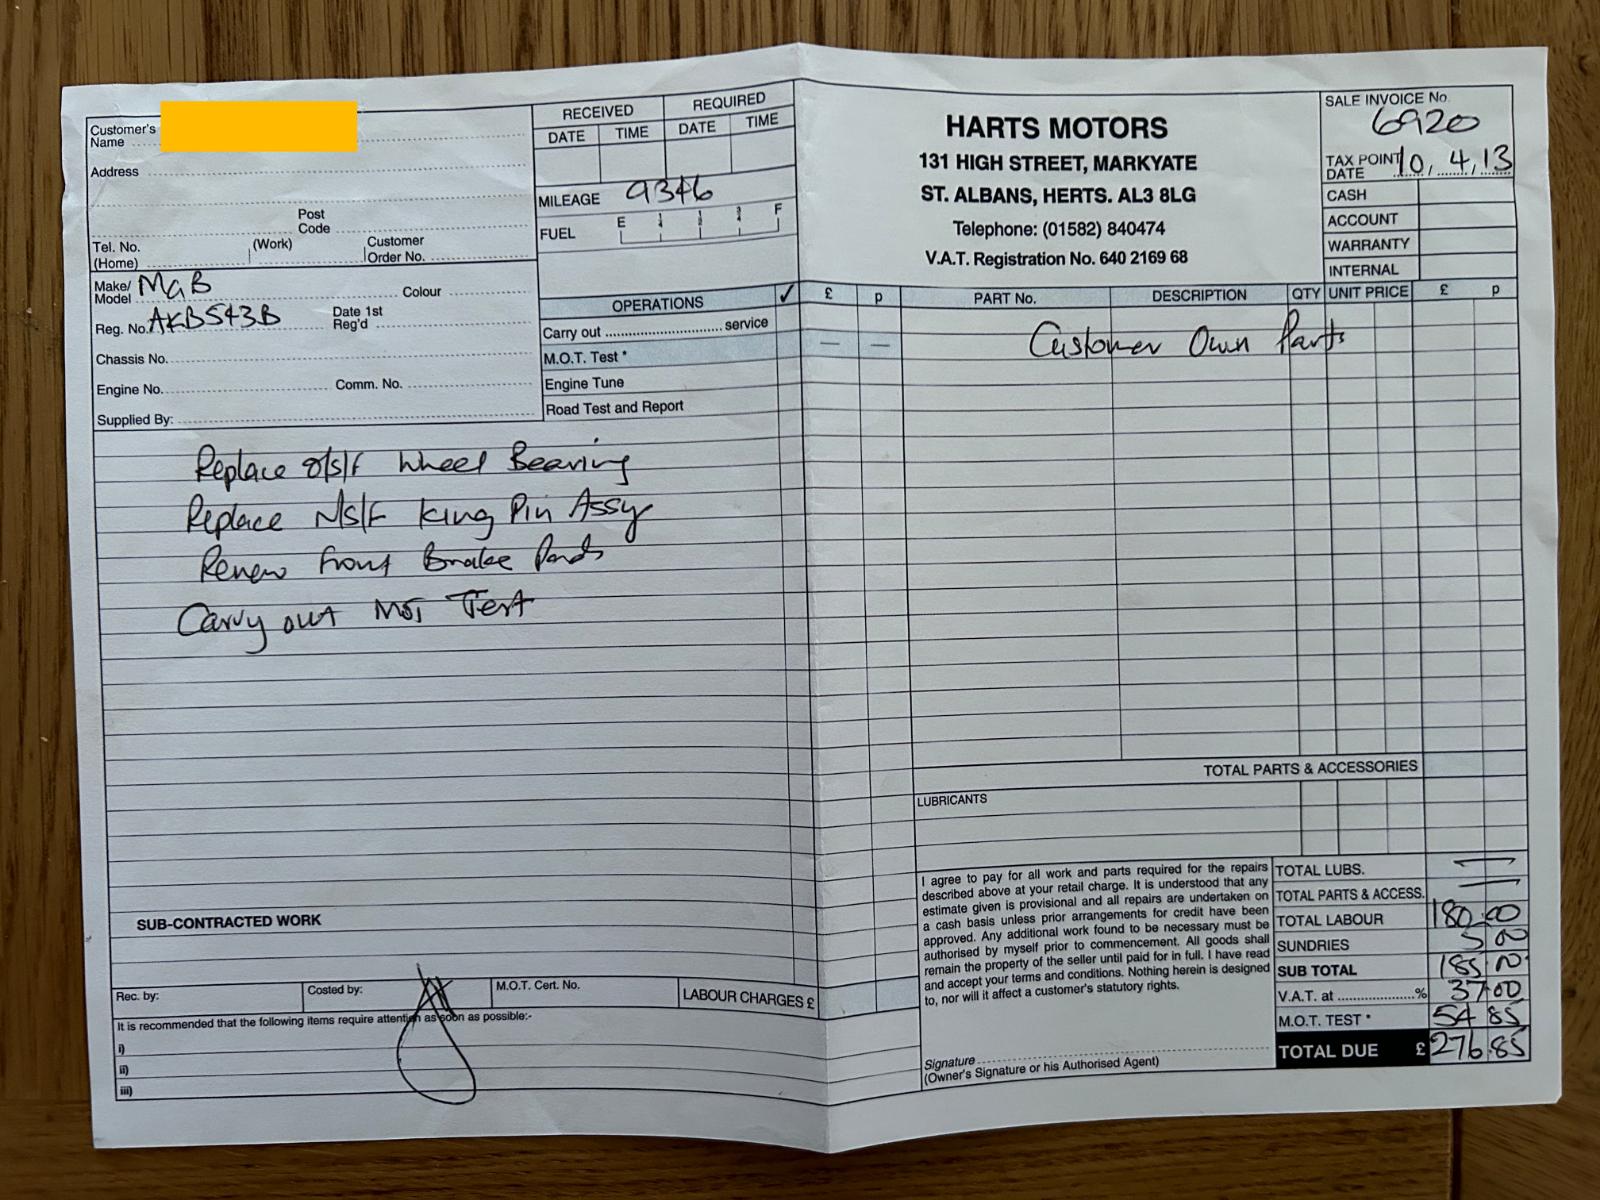 Customer's
Name
Address
Post
Code
Tel. No. (Work) Customer
(Home) Order No.
Make/ MGB
Model Colour
Reg. No. AKB543B Date 1st
Reg'd
Chassis No.
Engine No. Comm. No.
Supplied By:
RECEIVED REQUIRED
DATE TIME DATE TIME
MILEAGE 9346
FUEL E ¼ ½ ¾ F
OPERATIONS ✓ £ p
Carry out service
M.O.T. Test * — —
Engine Tune
Road Test and Report
HARTS MOTORS
131 HIGH STREET, MARKYATE
ST. ALBANS, HERTS. AL3 8LG
Telephone: (01582) 840474
V.A.T. Registration No. 640 2169 68
SALE INVOICE No.
6920
TAX POINT 10, 4, 13
DATE
CASH
ACCOUNT
WARRANTY
INTERNAL
PART No. DESCRIPTION QTY UNIT PRICE £ p
Customer Own Parts
Replace O/S/F Wheel Bearing
Replace N/S/F King Pin Assy
Renew Front Brake Pads
Carry out MOT Test
TOTAL PARTS & ACCESSORIES
LUBRICANTS
SUB-CONTRACTED WORK
Rec. by: Costed by: M.O.T. Cert. No. LABOUR CHARGES £
It is recommended that the following items require attention as soon as possible:-
i)
ii)
iii)
I agree to pay for all work and parts required for the repairs
described above at your retail charge. It is understood that any
estimate given is provisional and all repairs are undertaken on
a cash basis unless prior arrangements for credit have been
approved. Any additional work found to be necessary must be
authorised by myself prior to commencement. All goods shall
remain the property of the seller until paid for in full. I have read
and accept your terms and conditions. Nothing herein is designed
to, nor will it affect a customer's statutory rights.
Signature
(Owner's Signature or his Authorised Agent)
TOTAL LUBS. —
TOTAL PARTS & ACCESS. —
TOTAL LABOUR 180.00
SUNDRIES 5 00
SUB TOTAL 185.00
V.A.T. at % 37 00
M.O.T. TEST * 54 85
TOTAL DUE £ 276.85